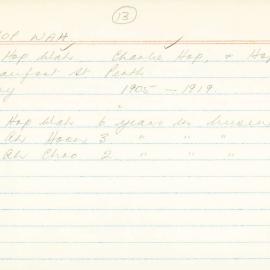 13
HOP WAH
Hop Wah Charlie Hop, & Ho
Beaufort St Perth
1905 — 1919
"
Hop Wah 6 years in busin
Ah Hoon 3 " " "
Ah Choo 2 " " "